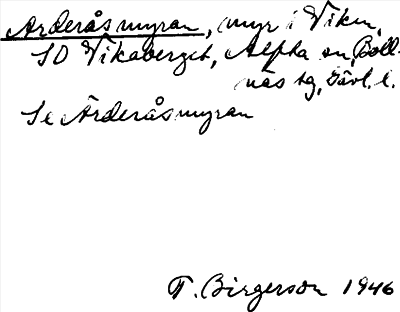 Arderåsmyran, myr i Viken,
SO Vikaberget, Alfta sn, Boll-
näs tg, Gävl. l.
Se Ärderåsmyran
T. Birgerson 1946